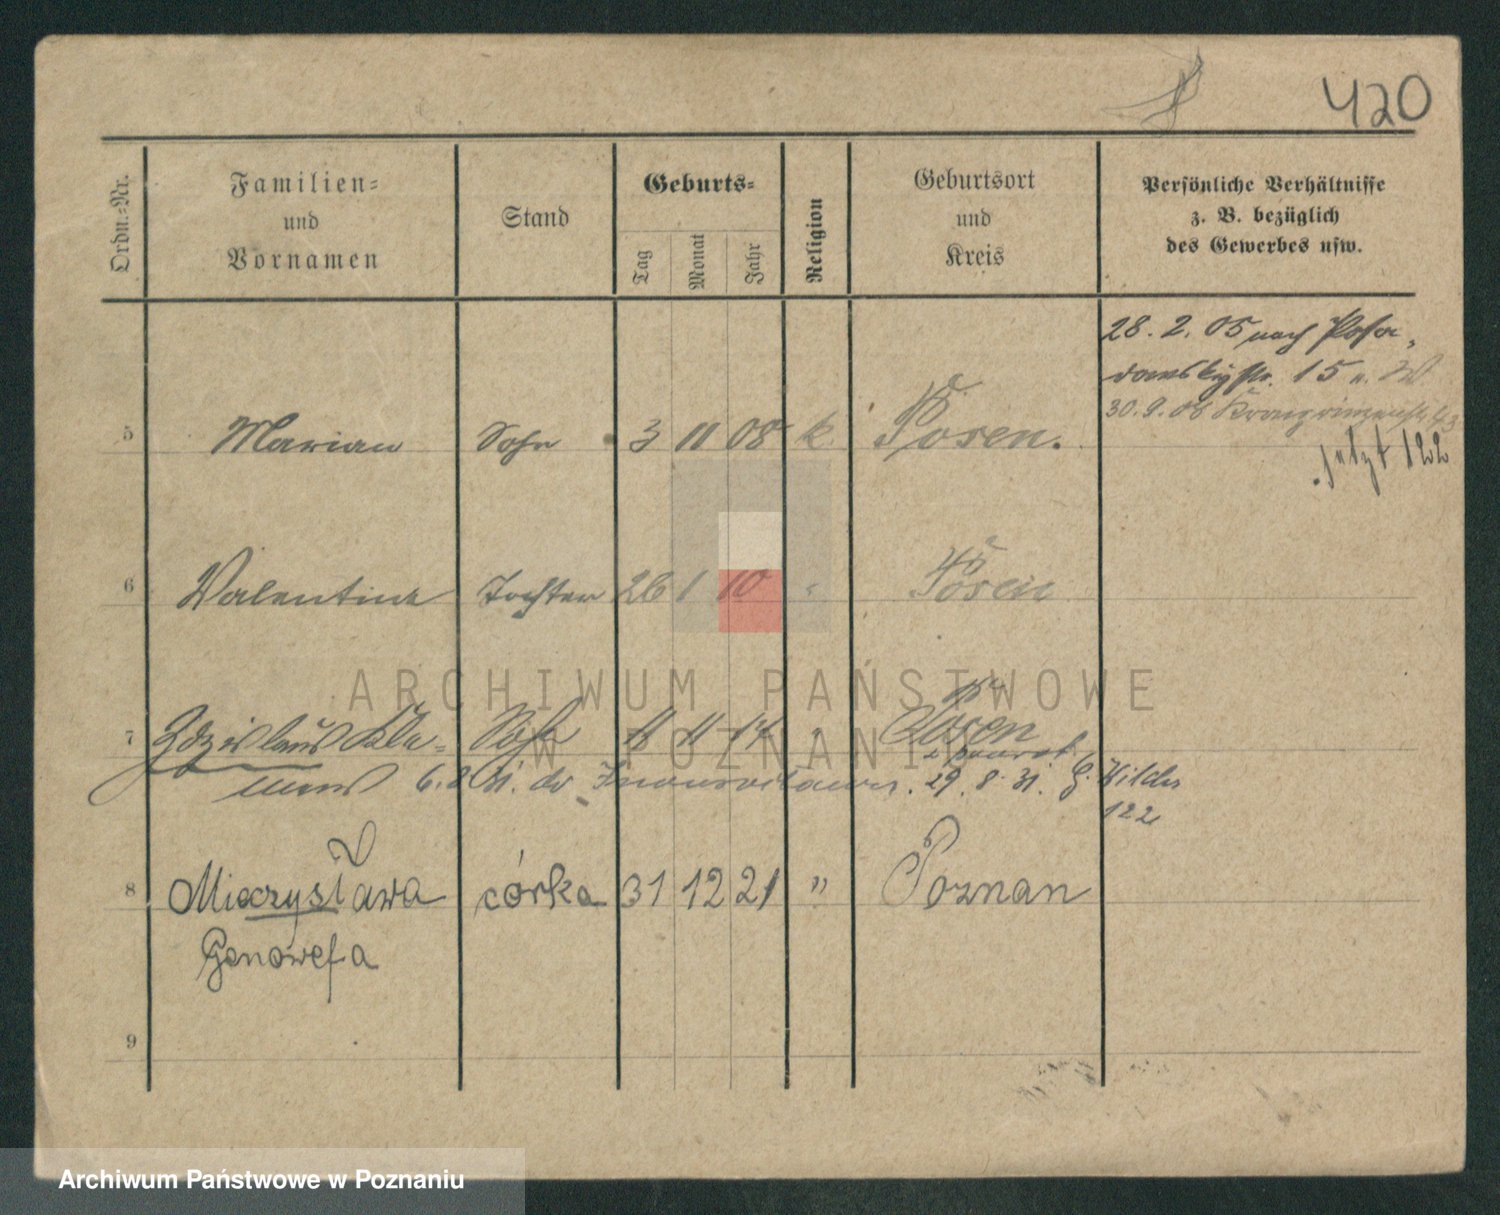 420
Ordn.-Nr.
Familien-
und
Vornamen
Stand
Geburts-
Tag
Monat
Jahr
Religion
Geburtsort
und
Kreis
Persönliche Verhältnisse
z. B. bezüglich
des Gewerbes usw.
28. 2. 05 nach Posa-
dowskystr. 15
30. 9. 08
jetzt 122
5 Marian Sohn 3 11 08 k Posen.
6 Valentina Tochter 26 1 10 " Posen
7 Zdzislaus Kle- Sohn 11 11 14 " Posen
mens 6. 8. 31. do 29. 8. 31. G. Wilda
122
8 Mieczysława córka 31 12 21 " Poznan
Genowefa
9
ARCHIWUM PAŃSTWOWE
W POZNANIU
Archiwum Państwowe w Poznaniu